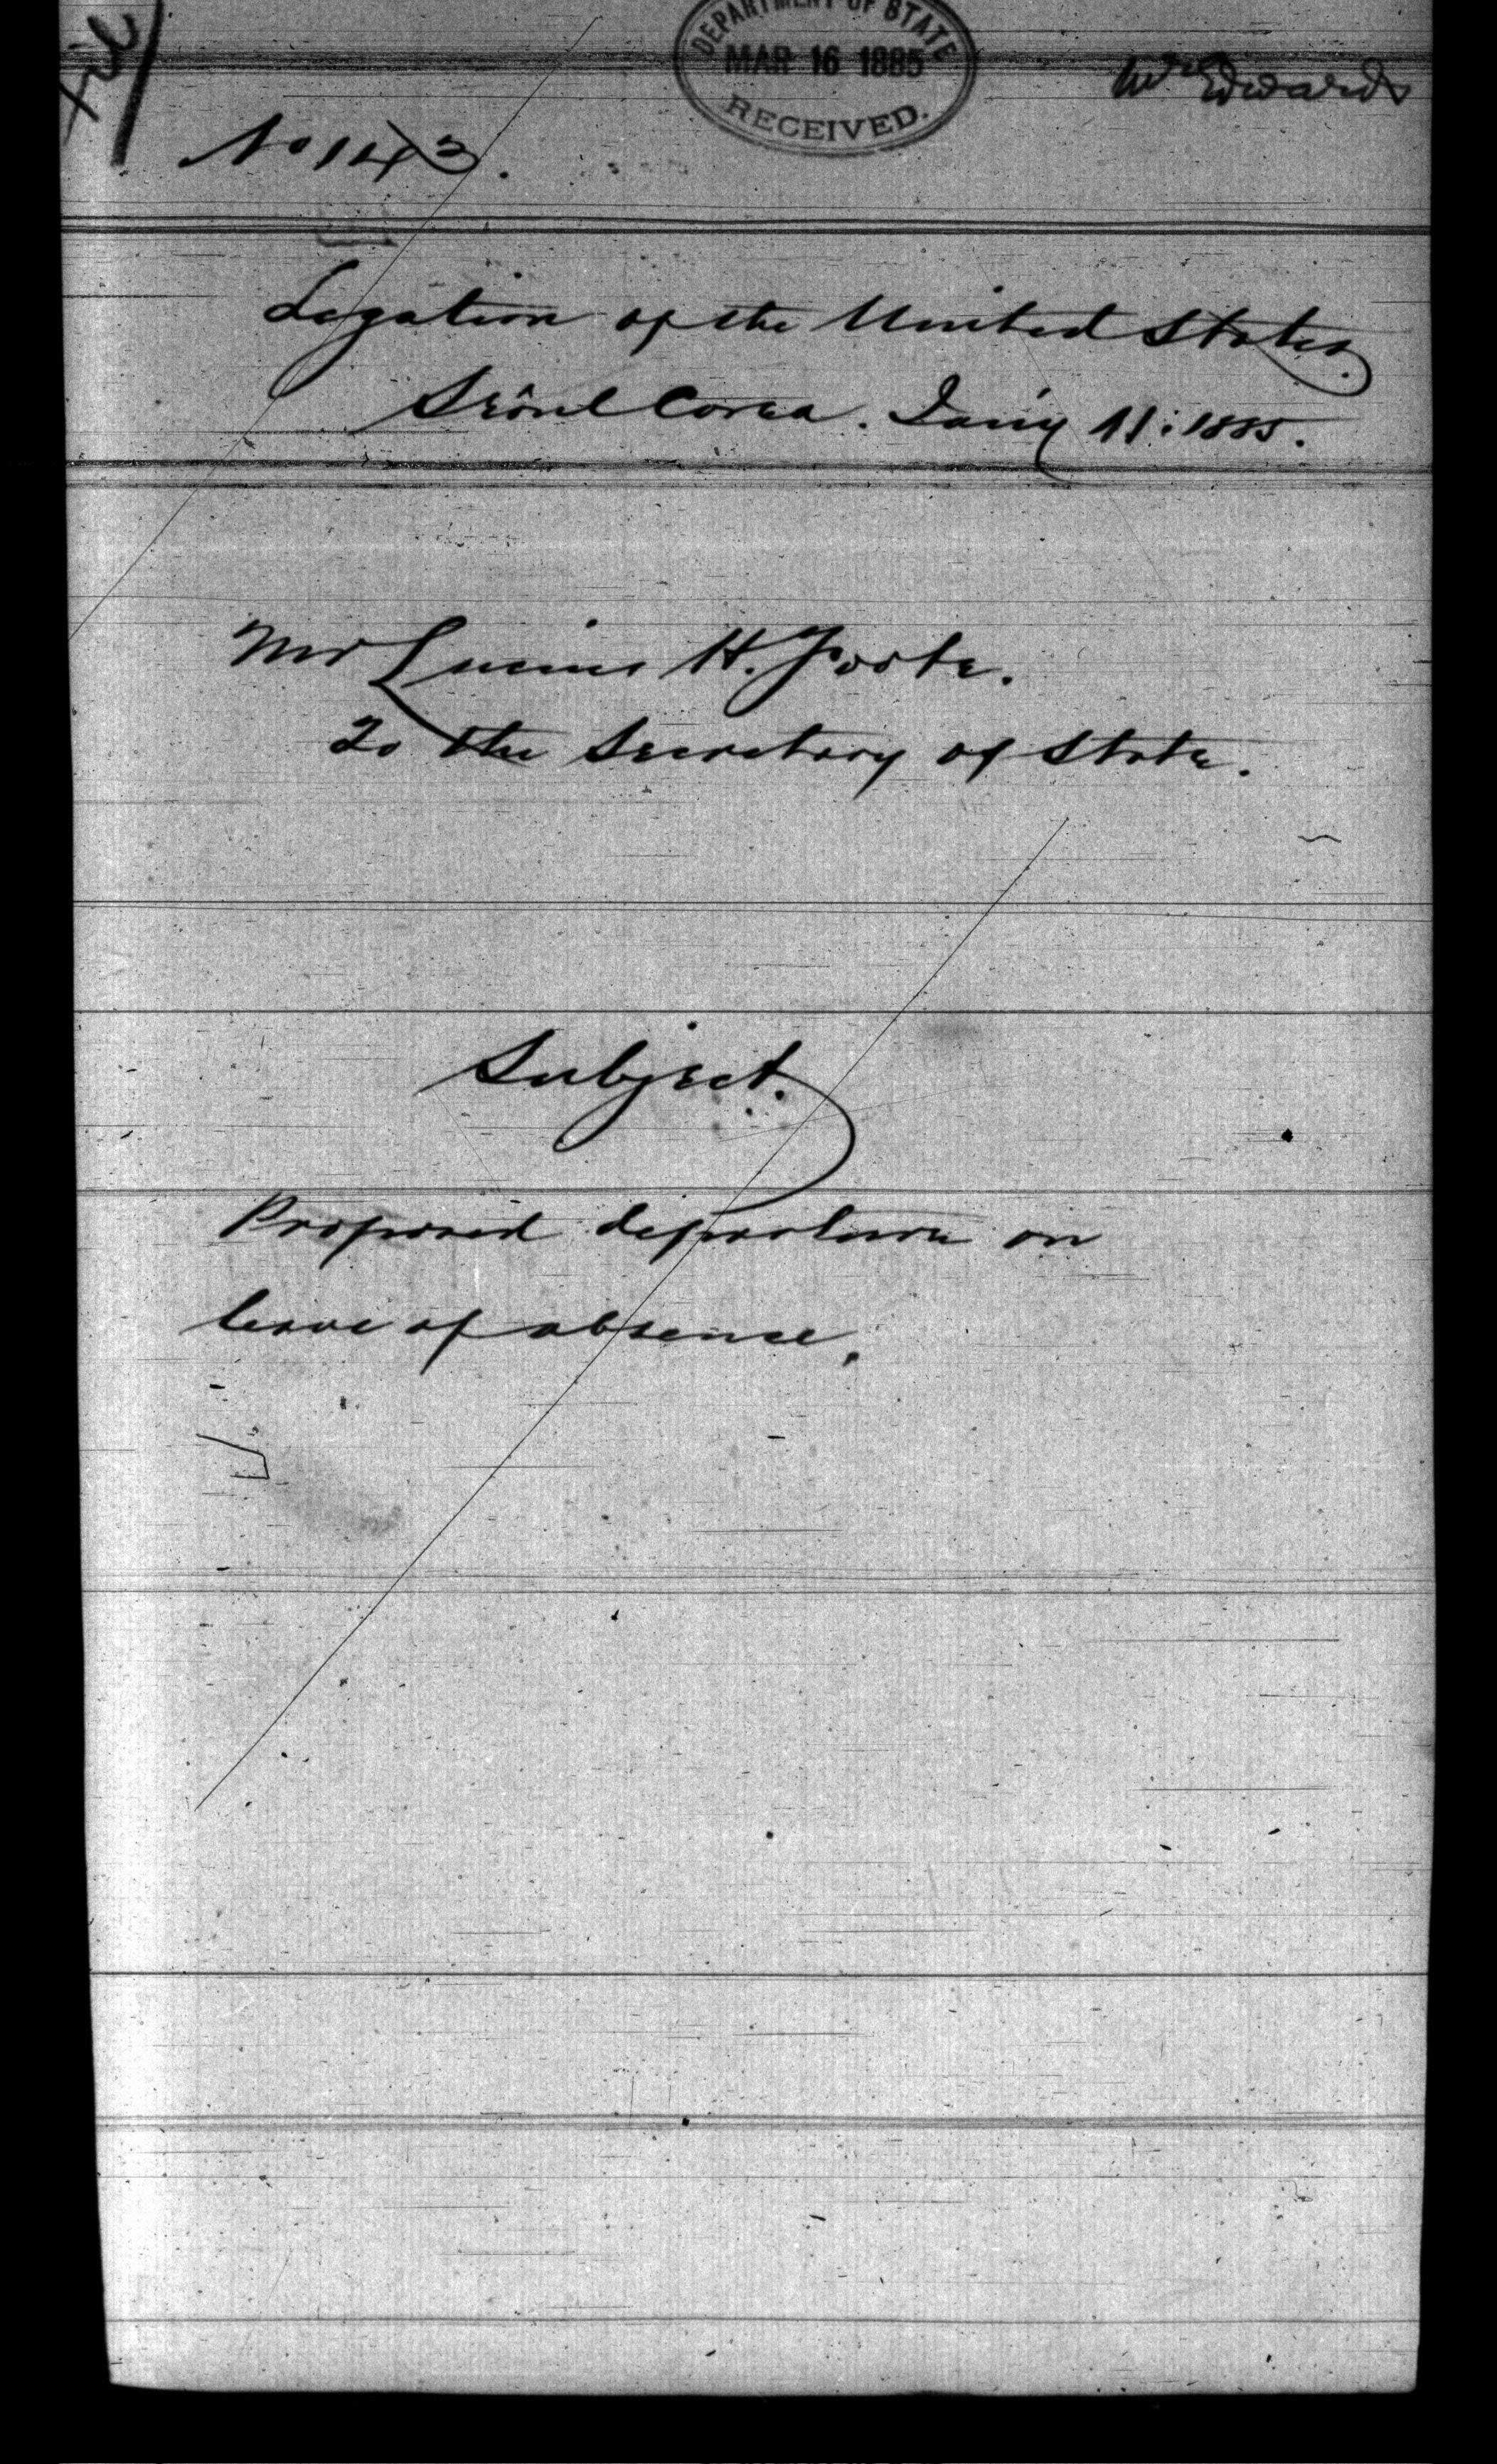 DEPARTMENT OF STATE
MAR 16 1885
RECEIVED.
Mr Edwards
No 143.
Legation of the United States.
Seôul Corea. Jan'y 11: 1885.
Mr Lucius H. Foote.
To the Secretary of State.
Subject.
Proposed departure on
leave of absence.